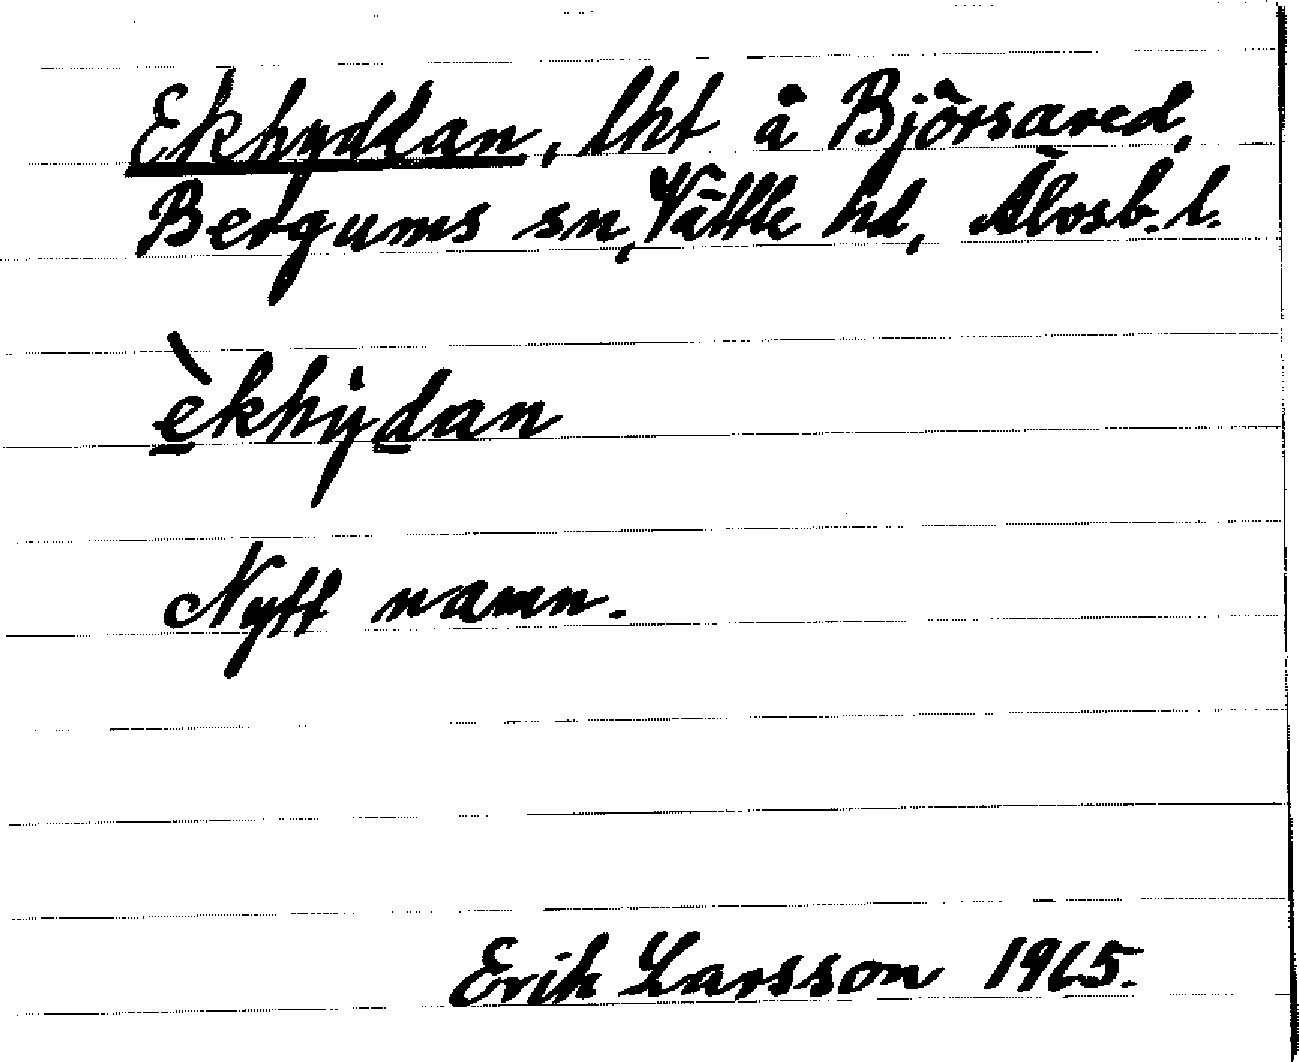 Ekhyddan, lht å Björsared,
Bergums sn, Vättle hd, Älvsb. l.
èkhỳdan
Nytt namn.
Erik Larsson 1965.